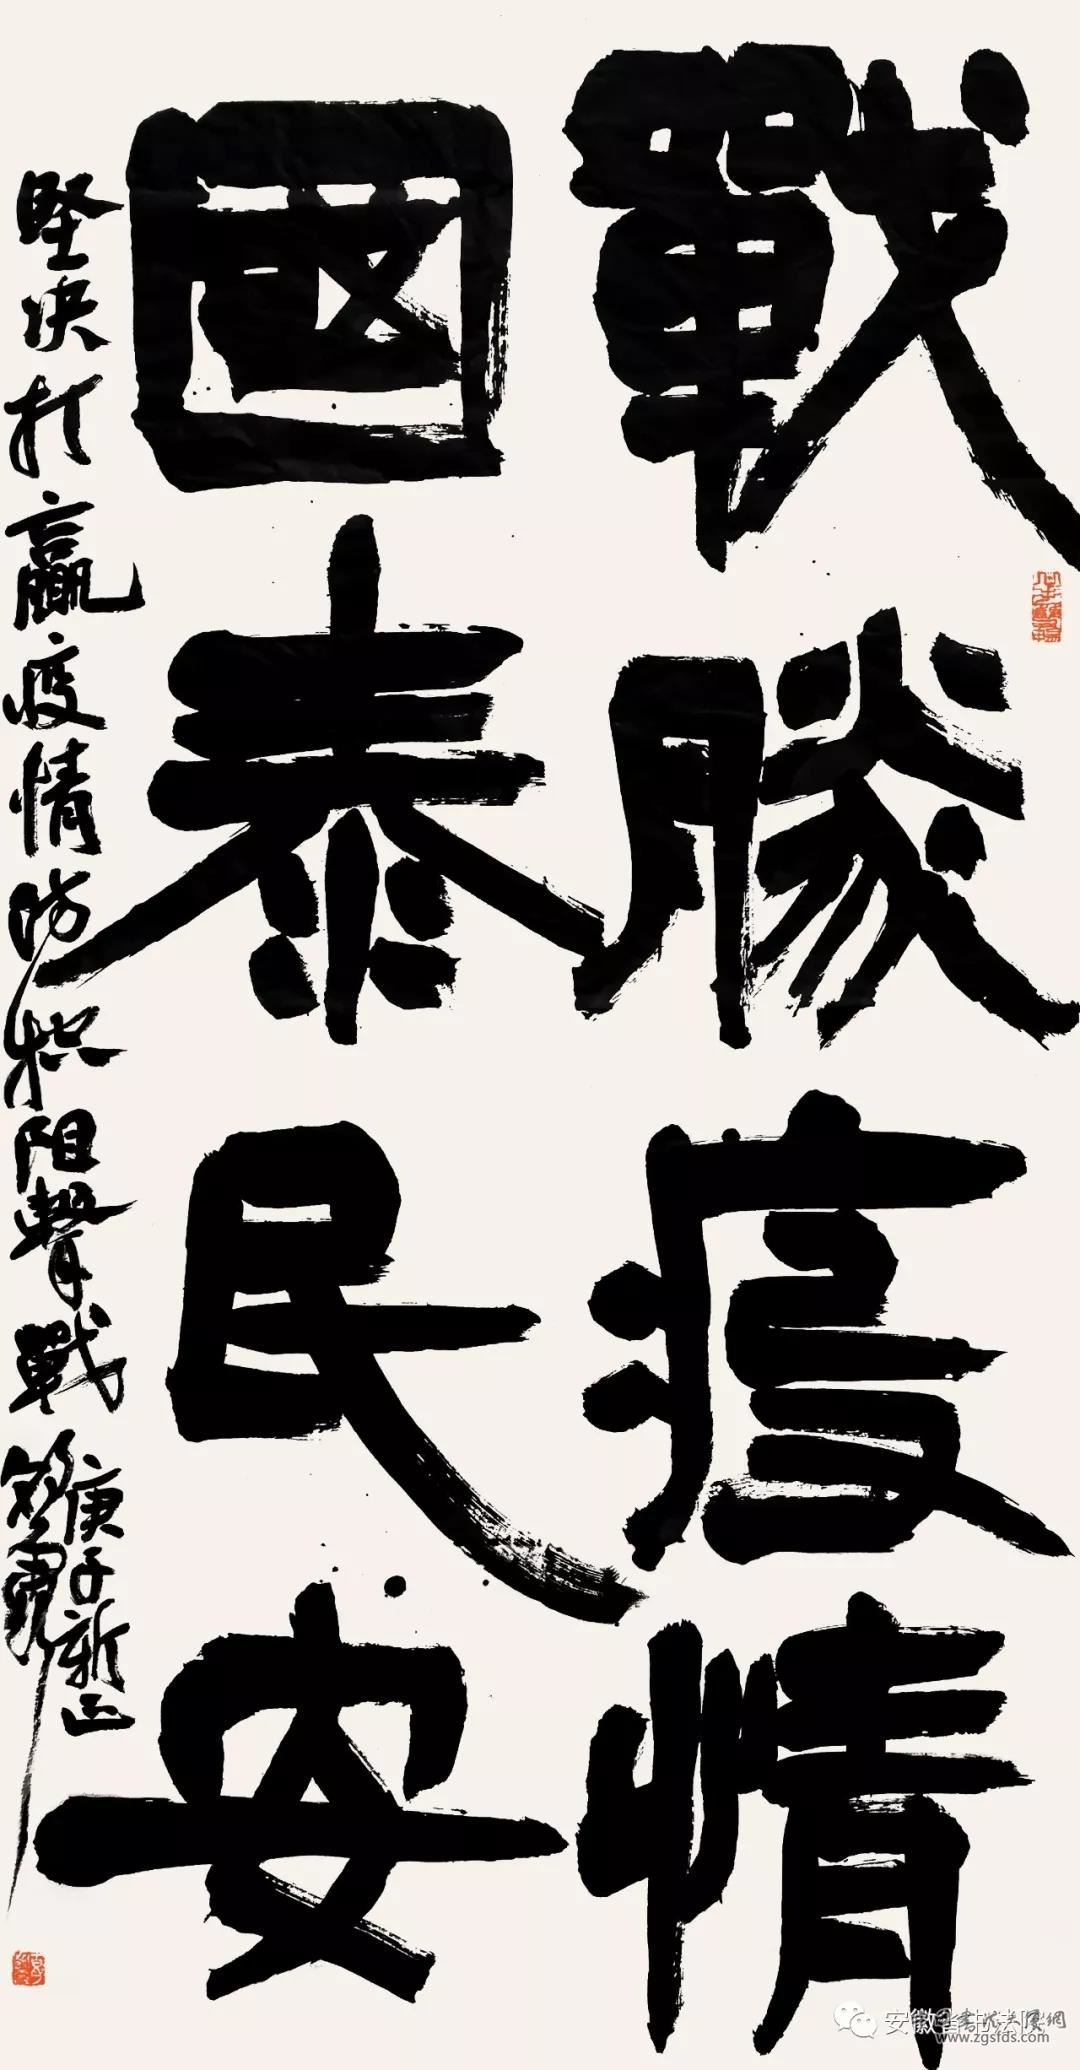 戰勝疫情
國泰民安
堅決打贏疫情防控阻擊戰
庚子新正
安徽省书法院
www.zgsfds.com